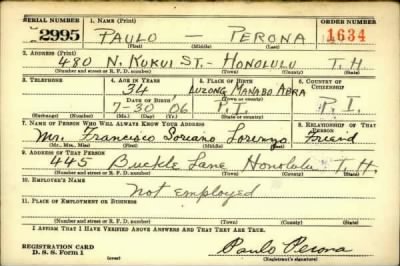 SERIAL NUMBER 1. NAME (Print) ORDER NUMBER
2995 PAULO — PERONA 1634
(First) (Middle) (Last)
2. ADDRESS (Print)
480 N. KUKUI ST. - HONOLULU T. H.
(Number and street or R. F. D. number) (Town) (County) (State)
3. TELEPHONE 4. AGE IN YEARS 5. PLACE OF BIRTH 6. COUNTRY OF CITIZENSHIP
34 LUZONG MANABO ABRA
DATE OF BIRTH (Town or county)
7-30 06 P.I. P.I.
(Exchange) (Number) (Mo.) (Day) (Yr.) (State or country)
7. NAME OF PERSON WHO WILL ALWAYS KNOW YOUR ADDRESS 8. RELATIONSHIP OF THAT PERSON
Mr. Francisco Soriano Lorenzo Friend
(Mr., Mrs., Miss) (First) (Middle) (Last)
9. ADDRESS OF THAT PERSON
445 Buckle Lane Honolulu T. H.
(Number and street or R. F. D. number) (Town) (County) (State)
10. EMPLOYER'S NAME
Not employed
11. PLACE OF EMPLOYMENT OR BUSINESS
(Number and street or R. F. D. number) (Town) (County) (State)
I AFFIRM THAT I HAVE VERIFIED ABOVE ANSWERS AND THAT THEY ARE TRUE.
REGISTRATION CARD
D. S. S. Form 1 Paulo Perona
(Registrant's signature)